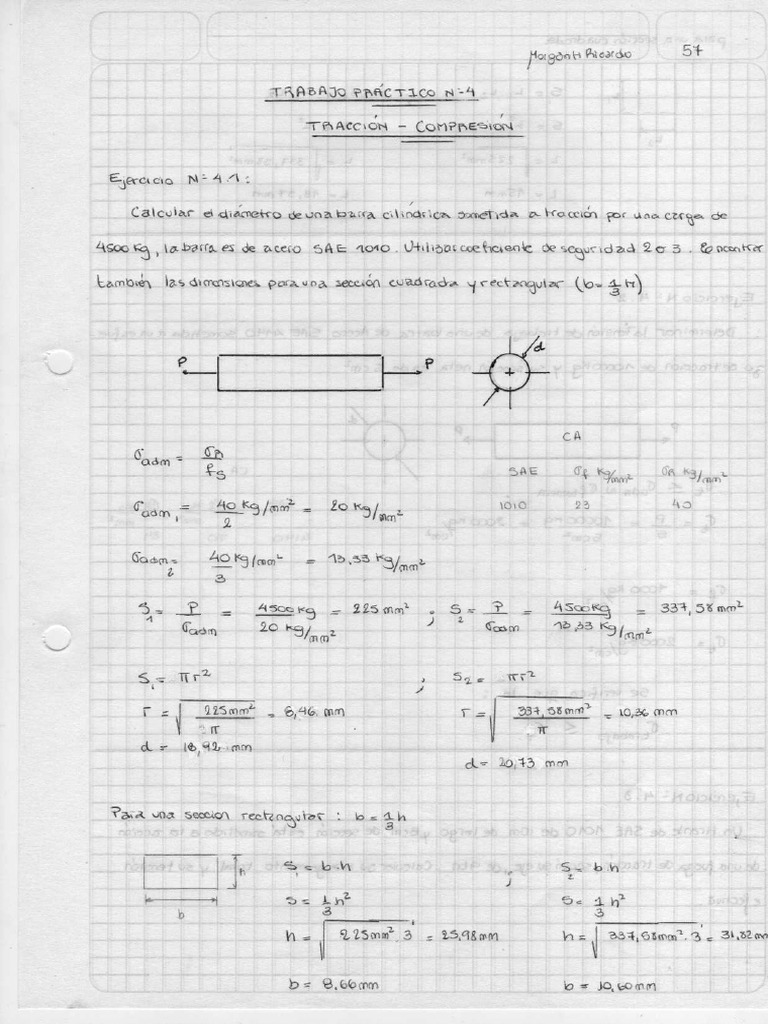 Morganti Ricardo 57
TRABAJO PRÁCTICO Nº 4
TRACCIÓN - COMPRESIÓN
Ejercicio Nº 4.1:
Calcular el diámetro de una barra cilíndrica sometida a tracción por una carga de
4500 Kg, la barra es de acero SAE 1010. Utilizar coeficiente de seguridad 2 o 3. Encontrar
también las dimensiones para una sección cuadrada y rectangular (b = 1/3 h)
P P d
CA
σadm = σR / fs
SAE σf Kg/mm² σR Kg/mm²
σadm1 = 40 Kg/mm² / 2 = 20 Kg/mm²
1010 23 40
σadm2 = 40 Kg/mm² / 3 = 13,33 Kg/mm²
S1 = P / σadm = 4500 Kg / 20 Kg/mm² = 225 mm² ; S2 = P / σadm = 4500 Kg / 13,33 Kg/mm² = 337,58 mm²
S1 = πr² ; S2 = πr²
r = √(225 mm² / π) = 8,46 mm r = √(337,58 mm² / π) = 10,36 mm
d = 18,92 mm
d = 20,73 mm
Para una seccion rectangular : b = 1/3 h
h b
S1 = b·h ; S2 = b·h
S = 1/3 h² S = 1/3 h²
h = √(225 mm² . 3) = 25,98 mm h = √(337,58 mm² . 3) = 31,82 mm
b = 8,66 mm b = 10,60 mm